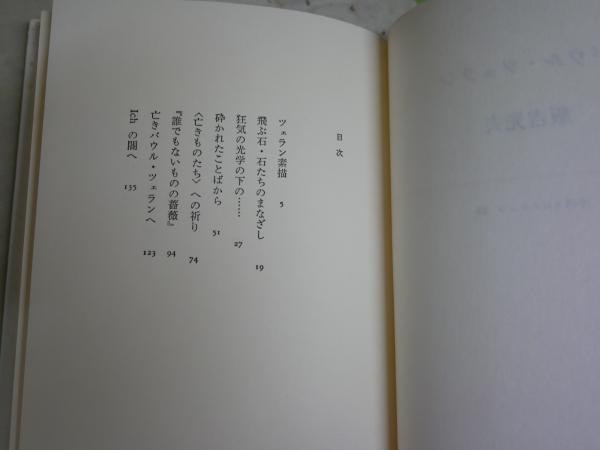 目次
ツェラン素描 5
飛ぶ石・石たちのまなざし 19
狂気の光学の下の…… 27
砕かれたことばから 51
〈亡きものたち〉への祈り 74
『誰でもないものの薔薇』 94
亡きパウル・ツェランへ 123
Ich の闇へ 135